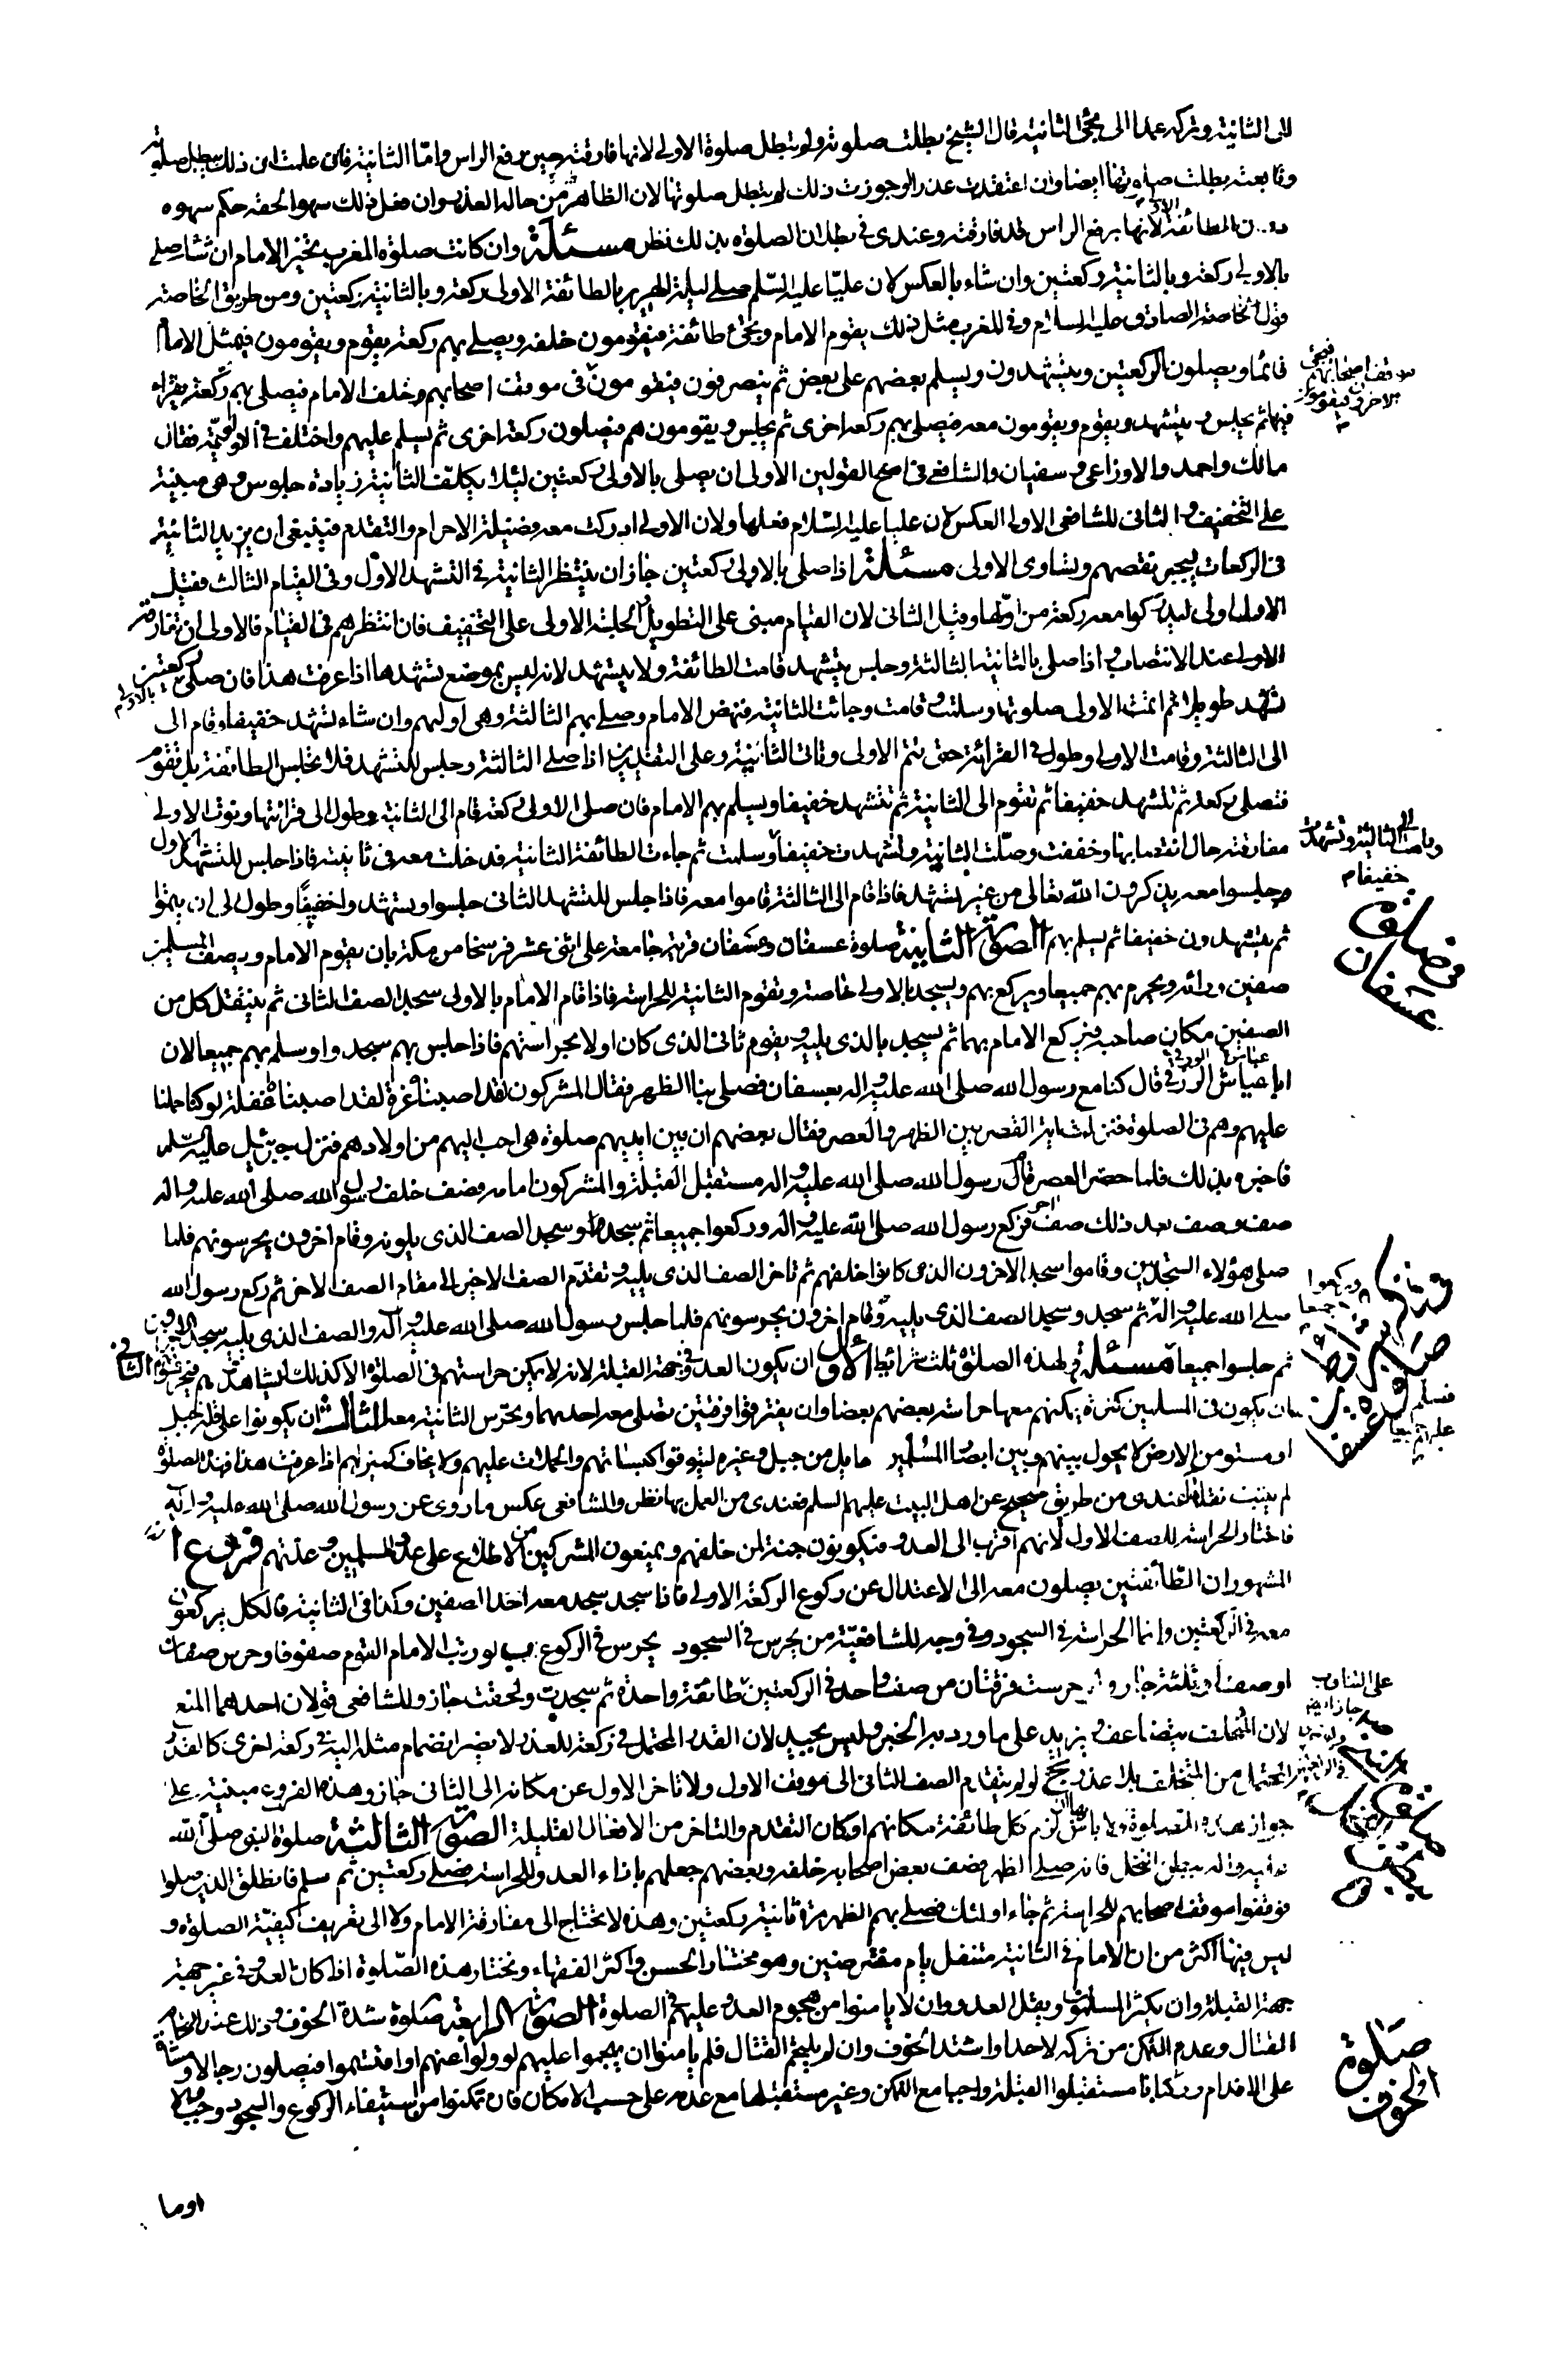 الى الثانية وتركه عمدا الى مجئ الثانية قال الشيخ بطلت صلوته ولم تبطل صلوة الاولى لانها فارقته حين رفع الراس وامّا الثانية فان علمت ان ذلك يبطل صلوته
وتابعته بطلت صلوتها ايضا وان اعتقدت عذرا لوجوزت ذلك لم يبطل صلوتها لان الظاهر من حاله العذر وان فعل ذلك سهوا لحقه حكم سهوه
دون الطائفة الاولى لانها برفع الراس قد فارقته وعندى فى بطلان الصلوة بذلك نظر مسئلة وان كانت صلوة المغرب تخير الامام ان شاء صلى
بالاولى ركعة وبالثانية ركعتين وان شاء بالعكس لان عليّا عليه السّلم صلى ليلة الهرير بالطائفة الاولى ركعة وبالثانية ركعتين ومن طريق الخاصة
قول الصادق عليه السلام وفى المغرب مثل ذلك يقوم الامام وتجئ طائفة فيقومون خلفه ويصلى بهم ركعة يقوم ويقومون فيمثل الامام
قائما ويصلون الركعتين ويتشهدون ويسلم بعضهم على بعض ثم ينصرفون فيقومون فى موقف اصحابهم وخلف الامام فيصلى بهم ركعة يقراء
فيها ثم يجلس ويتشهد ويقوم ويقومون معه فيصلى بهم ركعة اخرى ثم يجلس ويقومون هم فيصلون ركعة اخرى ثم يسلم عليهم واختلف فى الاولوية فقال
مالك واحمد والاوزاعى وسفيان والشافعى فى اصح القولين الاولى ان يصلى بالاولى ركعتين لئلا يكلف الثانية زيادة جلوس وهى مبنية
على التخفيف والثانى للشافعى الاولى العكس لان عليا عليه السّلام فعلها ولان الاولى ادركت معه فضيلة الاحرام والتقدم فينبغى ان يزيد الثانية
فى الركعات ليجبر نقصهم ويساوى الاولى مسئلة اذا صلى بالاولى ركعتين جاز ان ينتظر الثانية فى التشهد الاوّل وفى القيام الثالث فقيل
الاول اولى ليدركوا معه ركعة من اولها وقيل الثانى لان القيام مبنى على التطويل والجلسة الاولى على التخفيف فان انتظرهم فى القيام فالاولى ان تفارقه
الاولى عند الانتصاب واذا صلى بالثانية الثالثة وجلس يتشهد قامت الطائفة ولا يتشهد لانه ليس بموضع تشهدها اذا عرفت هذا فان صلى بالاولى ركعتين
تشهد طويلا ثم اتمت الاولى صلوتها وسلمت وقامت وجائت الثانية فنهض الامام وصلى بهم الثالثة وهى اوليهم وان شاء تشهد خفيفا وقام الى
الى الثالثة وقامت الاولى وطول فى القرائة حتى تتم الاولى وتاتى الثانية وعلى التقديرين اذا صلى الثالثة وجلس للتشهد فلا تجلس الطائفة بل تقوم
فتصلى ركعة ثم تتشهد خفيفا ثم تقوم الى الثانية ثم تتشهد خفيفا ويسلم بهم الامام فان صلى الاولى ركعة قام الى الثانية وطول الى قرائتها ونوت الاولى
مفارقته حال انتصابها وخففت وصلّت الثانية وتشهدت خفيفا وسلمت ثم جاءت الطائفة الثانية فدخلت معه فى ثانيته فاذا جلس للتشهد الاول
وجلسوا معه يذكرون اللّه تعالى من غير تشهد فاذا قام الى الثالثة قاموا معه فاذا جلس للتشهد الثانى جلسوا وتشهد واخفيفا وطول الى ان يتموا
ثم يتشهدون خفيفا ثم يسلم بهم الصورة الثانية صلوة عسفان وعسفان قرية جامعة على اثنى عشر فرسخا من مكة بان يقوم الامام ويصف المسلمين
صفين ورائه ويحرم بهم جميعا ويركع بهم ويسجد بالاولى خاصة وتقوم الثانية للحراسة فاذا قام الامام بالاولى سجد الصف الثانى ثم ينتقل كل من
الصفين مكان صاحبه فيركع الامام بهما ثم يسجد بالذى يليه ويقوم ثانى الذى كان اولا بحراستهم فاذا جلس بهم سجدوا وسلم بهم جميعا لان
ابا عياش الزرقى قال كنا مع رسول الله صلى الله عليه واله بعسفان فصلى بنا الظهر فقال المشركون لقد اصبنا غرة لقد اصبنا غفلة لو كنا حملنا
عليهم وهم فى الصلوة فنزلت اية القصر بين الظهر والعصر فقال بعضهم ان بين ايديهم صلوة هى احب اليهم من اولادهم فنزل جبرئيل عليه السّلم
فاخبره بذلك فلما حضر العصر قام رسول الله صلى الله عليه واله مستقبل القبلة والمشركون امامه وصف خلف رسول الله صلى الله عليه واله
صف وصف بعد ذلك صف اخر فركع رسول الله صلى اللّه عليه واله وركعوا جميعا ثم سجد وسجد الصف الذى يلونه وقام اخرون يحرسونهم فلما
صلى هؤلاء السجدتين وقاموا سجد الاخرون الذى كانوا خلفهم ثم تاخر الصف الذى يليه وتقدم الصف الاخير الى مقام الصف الاخر ثم ركع رسول الله
صلى الله عليه واله ثم سجد وسجد الصف الذى يليه وقام اخرون يحرسونهم فلما جلس رسول الله صلى الله عليه واله والصف الذى يليه سجد الاخرون
ثم جلسوا جميعا مسئلة لهذه الصلوة ثلث شرائط الاول ان يكون العدو فى جهة القبلة لانه لا يمكن حراستهم فى الصلوة الا كذلك ليشاهدوهم الثانى
ان يكون فى المسلمين كثرة يمكنهم معها حراسة بعضهم بعضا وان يفترقوا فرقتين تصلى معه احديهما وتحرس الثانية معه الثالث ان يكونوا على قلة جبل
او مستو من الارض لا يحول بينهم وبين ابصار المسلمين حايل من جبل وغيره ليتوقوا كبساتهم والحملات عليهم ولا يخاف كمين لهم اذا عرفت هذا فهذه الصلوة
لم يثبت نقلها عندى من طريق صحيح عن اهل البيت عليهم السلم فعندى من العمل بها نظر والشافعى عكس ما روى عن رسول الله صلى الله عليه واله
فاختار الحراسة للصف الاول لانهم اقرب الى العدو فيكونون جنة لمن خلفهم ويمنعون المشركين من الاطلاع على عدد المسلمين وعدتهم فروع ا
المشهور ان الطّائفتين يصلون معه الى الاعتدال عن ركوع الركعة الاولى فاذا سجد سجد معه احد الصفين وكذا فى الثانية فالكل يركعون
معه فى الركعتين وانما الحراسة فى السجود وفى وجه للشافعيّة من يحرس فى السجود يحرس فى الركوع ب لو رتب الامام القوم صفوفا وحرس صفان
او صف او ثلثة جاز ولو حرست فرقتان من صف واحد فى الركعتين طائفة واحدة ثم سجدت ولحقت جاز وللشافعى قولان احدهما المنع
لان التخلف يتضاعف ويزيد على ما ورد به الخبر وليس بجيد لان القدر المحتمل فى ركعة للعذر لا يضر انضمام مثله اليه فى ركعة اخرى كالقدر
المحتمل من التخلف بلا عذر ج لو لم يتقدم الصف الثانى الى موقف الاول ولا تاخر الاول عن مكانه الى الثانى جاز وهذه الفروع مبنية على
جواز هذه الصلوة ولا باس بها ان لزم كل طائفة مكانهم او كان التقدم والتاخر من الافعال القليلة الصورة الثالثة صلوة النبى صلى اللّه
عليه واله ببطن النخل فانه صلى الظهر فصف بعض اصحابه خلفه وبعضهم جعلهم بازاء العدو للحراسة فصلى ركعتين ثم سلم فانطلق الذين صلوا
فوقفوا موقف اصحابهم للحراسة ثم جاء اولئك فصلى بهم الظهر مرة ثانية ركعتين وهذه لا تحتاج الى مفارقة الامام ولا الى تعريف كيفيّة الصلوة و
ليس فيها اكثر من ان الامام فى الثانية متنفل يام مفترضين وهو مختار الحسن واكثر الفقهاء ونختار هذه الصّلوة اذا كان العدو فى غير جهة
جهة القبلة وان يكثر المسلمون ويقل العدو وان لا يامنوا من هجوم العدو عليهم فى الصلوة الصورة الرابعة صلوة شدة الخوف وذلك عند التحام
القتال وعدم التمكن من تركه لاحد او اشتد الخوف وان لم يلتحم القتال فلم يامنوا ان يهجموا عليهم لو ولوا عنهم او انقسموا فيصلون رجالا ومشاة
على الاقدام وركبانا مستقبلوا القبلة واجبا مع التمكن وغير مستقبلها مع عدمه على حسب الامكان فان تمكنوا من استيفاء الركوع والسجود وجب
اوما
موقف اصحابهم فيجئ
الاخرون فيقومون
وياتى الثالثة وتشهدت
خفيفا م
عسفان
وركعوا
جميعا
فسلم
عليهم جميعا
على التناوب
صلوة
الخوف